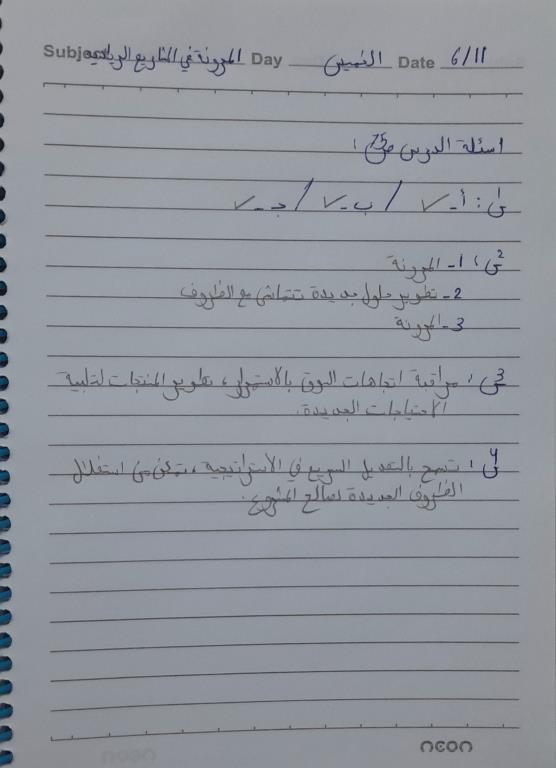 Subject المرونة في المشاريع الريادية Day الخميس Date 6/11
اسئلة الدرس ص75:
س1: أ- ✓ / ب- ✓ / ج- ✓
س2: 1- المرونة
2- تطوير حلول جديدة تتماشى مع الظروف
3- المرونة
س3: مراقبة اتجاهات السوق بالاستمرار، تطوير المنتجات لتلبية
الاحتياجات الجديدة.
س4: تسمح بالتعديل السريع في الاستراتيجية، تمكن من استغلال
الظروف الجديدة لصالح المشروع.
neon